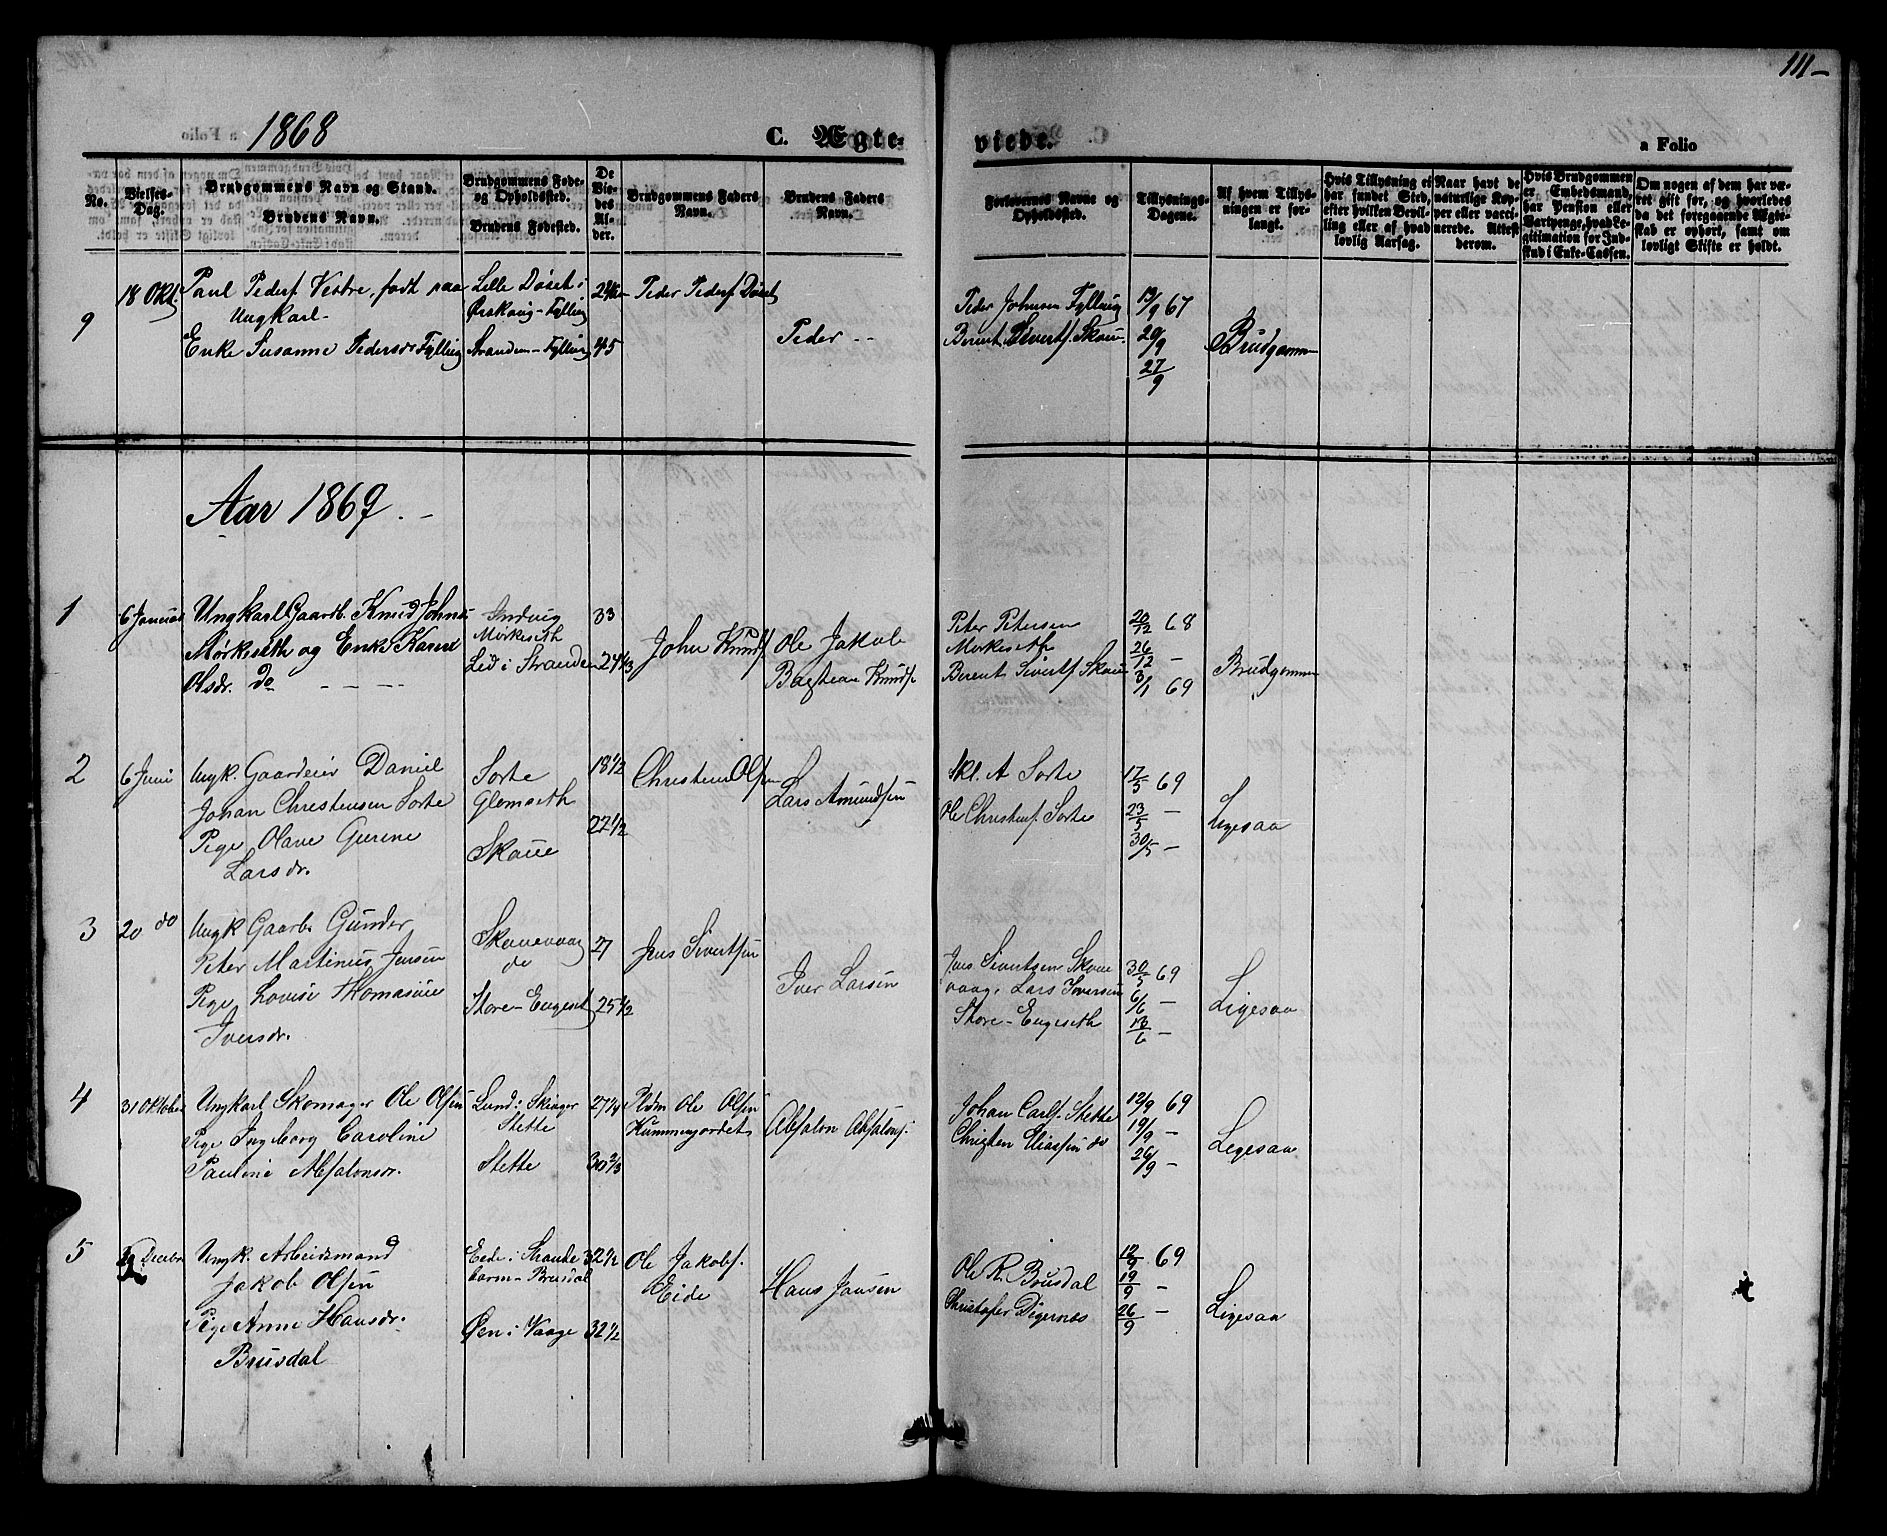 111-
1868
C. Ægte-
viede.
a Folio
No.
Vielses-
Dag.
Brudgommens Navn og Stand.
Brudens Navn.
Brudgommens Føde-
og Opholdssted.
Brudens Fødested.
De
Vie-
des
Al-
der.
Brudgommens Faders
Navn.
Brudens Faders
Navn.
Forlovernes Navne og
Opholdssted.
Tillysnings-
Dagene.
Af hvem Tillys-
ningen er for-
langt.
Hvis Tillysning ei
har fundet Sted,
efter hvilken Bevil-
ling eller af hvad
lovlig Aarsag.
Naar havt de
naturlige Kop-
per eller vacci-
nerede. Attest
derom.
Hvis Brudgommen
er Embedsmand,
har Pension eller
Vartpenge, hvad Le-
gitimation for Ind-
skud i Enke-Cassen.
Om nogen af dem har væ-
ret gift før, og hvorledes
da det foregaaende Ægte-
skab er ophørt, samt om
lovligt Skifte er holdt.
9
18 Okt.
Paul Peders. Vestre, født paa
Ungkarl-
Enke Susanne Pedersdr Fylling
Lille Døset i
Ørskoug-Fylling
Stranden-Fylling
45
Peder Peders. Døset
Peder - -
Peder Johnsen Fylling
Berent Siverts. Skoue.
13/9 67
20/9
27/9
Brudgommen
Aar 1869. -
1
6 Januar
Ungkarl Gaardb. Knud Johns.
Mørkeseth og Enke Karen
Olsdr. do - - -
Indvig
Mørkeseth
Lid i Stranden
33
24 1/3
John Knuds.
Ole Jakob
Bastean Knuds.
Peter Petersen
Mørkeseth
Berent Siverts. Skoue
20/12 68
26/12 -
3/1 69
Brudgommen
2
6 Juni
Ungk. Gaardeier Daniel
Johan Christensen Sorte
Pige Olave Gurine
Larsdr.
Sorte
Glomseth
Skoue
18 1/2
27 1/2
Christen Olsen
Lars Amundsen
Skl. A Sorte
Ole Christens. Sorte
17/5 69
23/5 -
30/5 -
Ligesaa
3
20 do
Ungk Gaarb. Gunder
Peter Martinus Jensen
Pige Lovise Thomasine
Iversdr.
Skouevaag
do
Store-Engeset
27
25 1/2
Jens Sivertsen
Iver Larsen
Jens Sivertsen Skoue
vaag, Lars Iversen
Store-Engeseth
30/5 69
6/6 -
13/6 -
Ligesaa
4
31 Oktober
Ungkarl Skomager Ole Olsen
Pige Ingborg Caroline
Pauline Absalonsdr.
Lund i Skoger
Stette
Stette
27 1/4
30 2/3
Ole Olsen
Hummergardet
Absalon Absalons.
Johan Carls. Stette
Christen Eliassen do
12/9 69
19/9 -
26/9 -
Ligesaa
5
Decbr
Ungk. Arbeidsmand
Jakob Olsen
Pige Anne Hansdr.
Brusdal
Eide i Strande
barm-Brusdal
Øen i Vaage
32 1/2
32 1/2
Ole Jakobs.
Eide
Hans Jansen
Ole R. Brusdal
Christofer Digernæs
12/9 69
19/9 -
26/9 -
Ligesaa